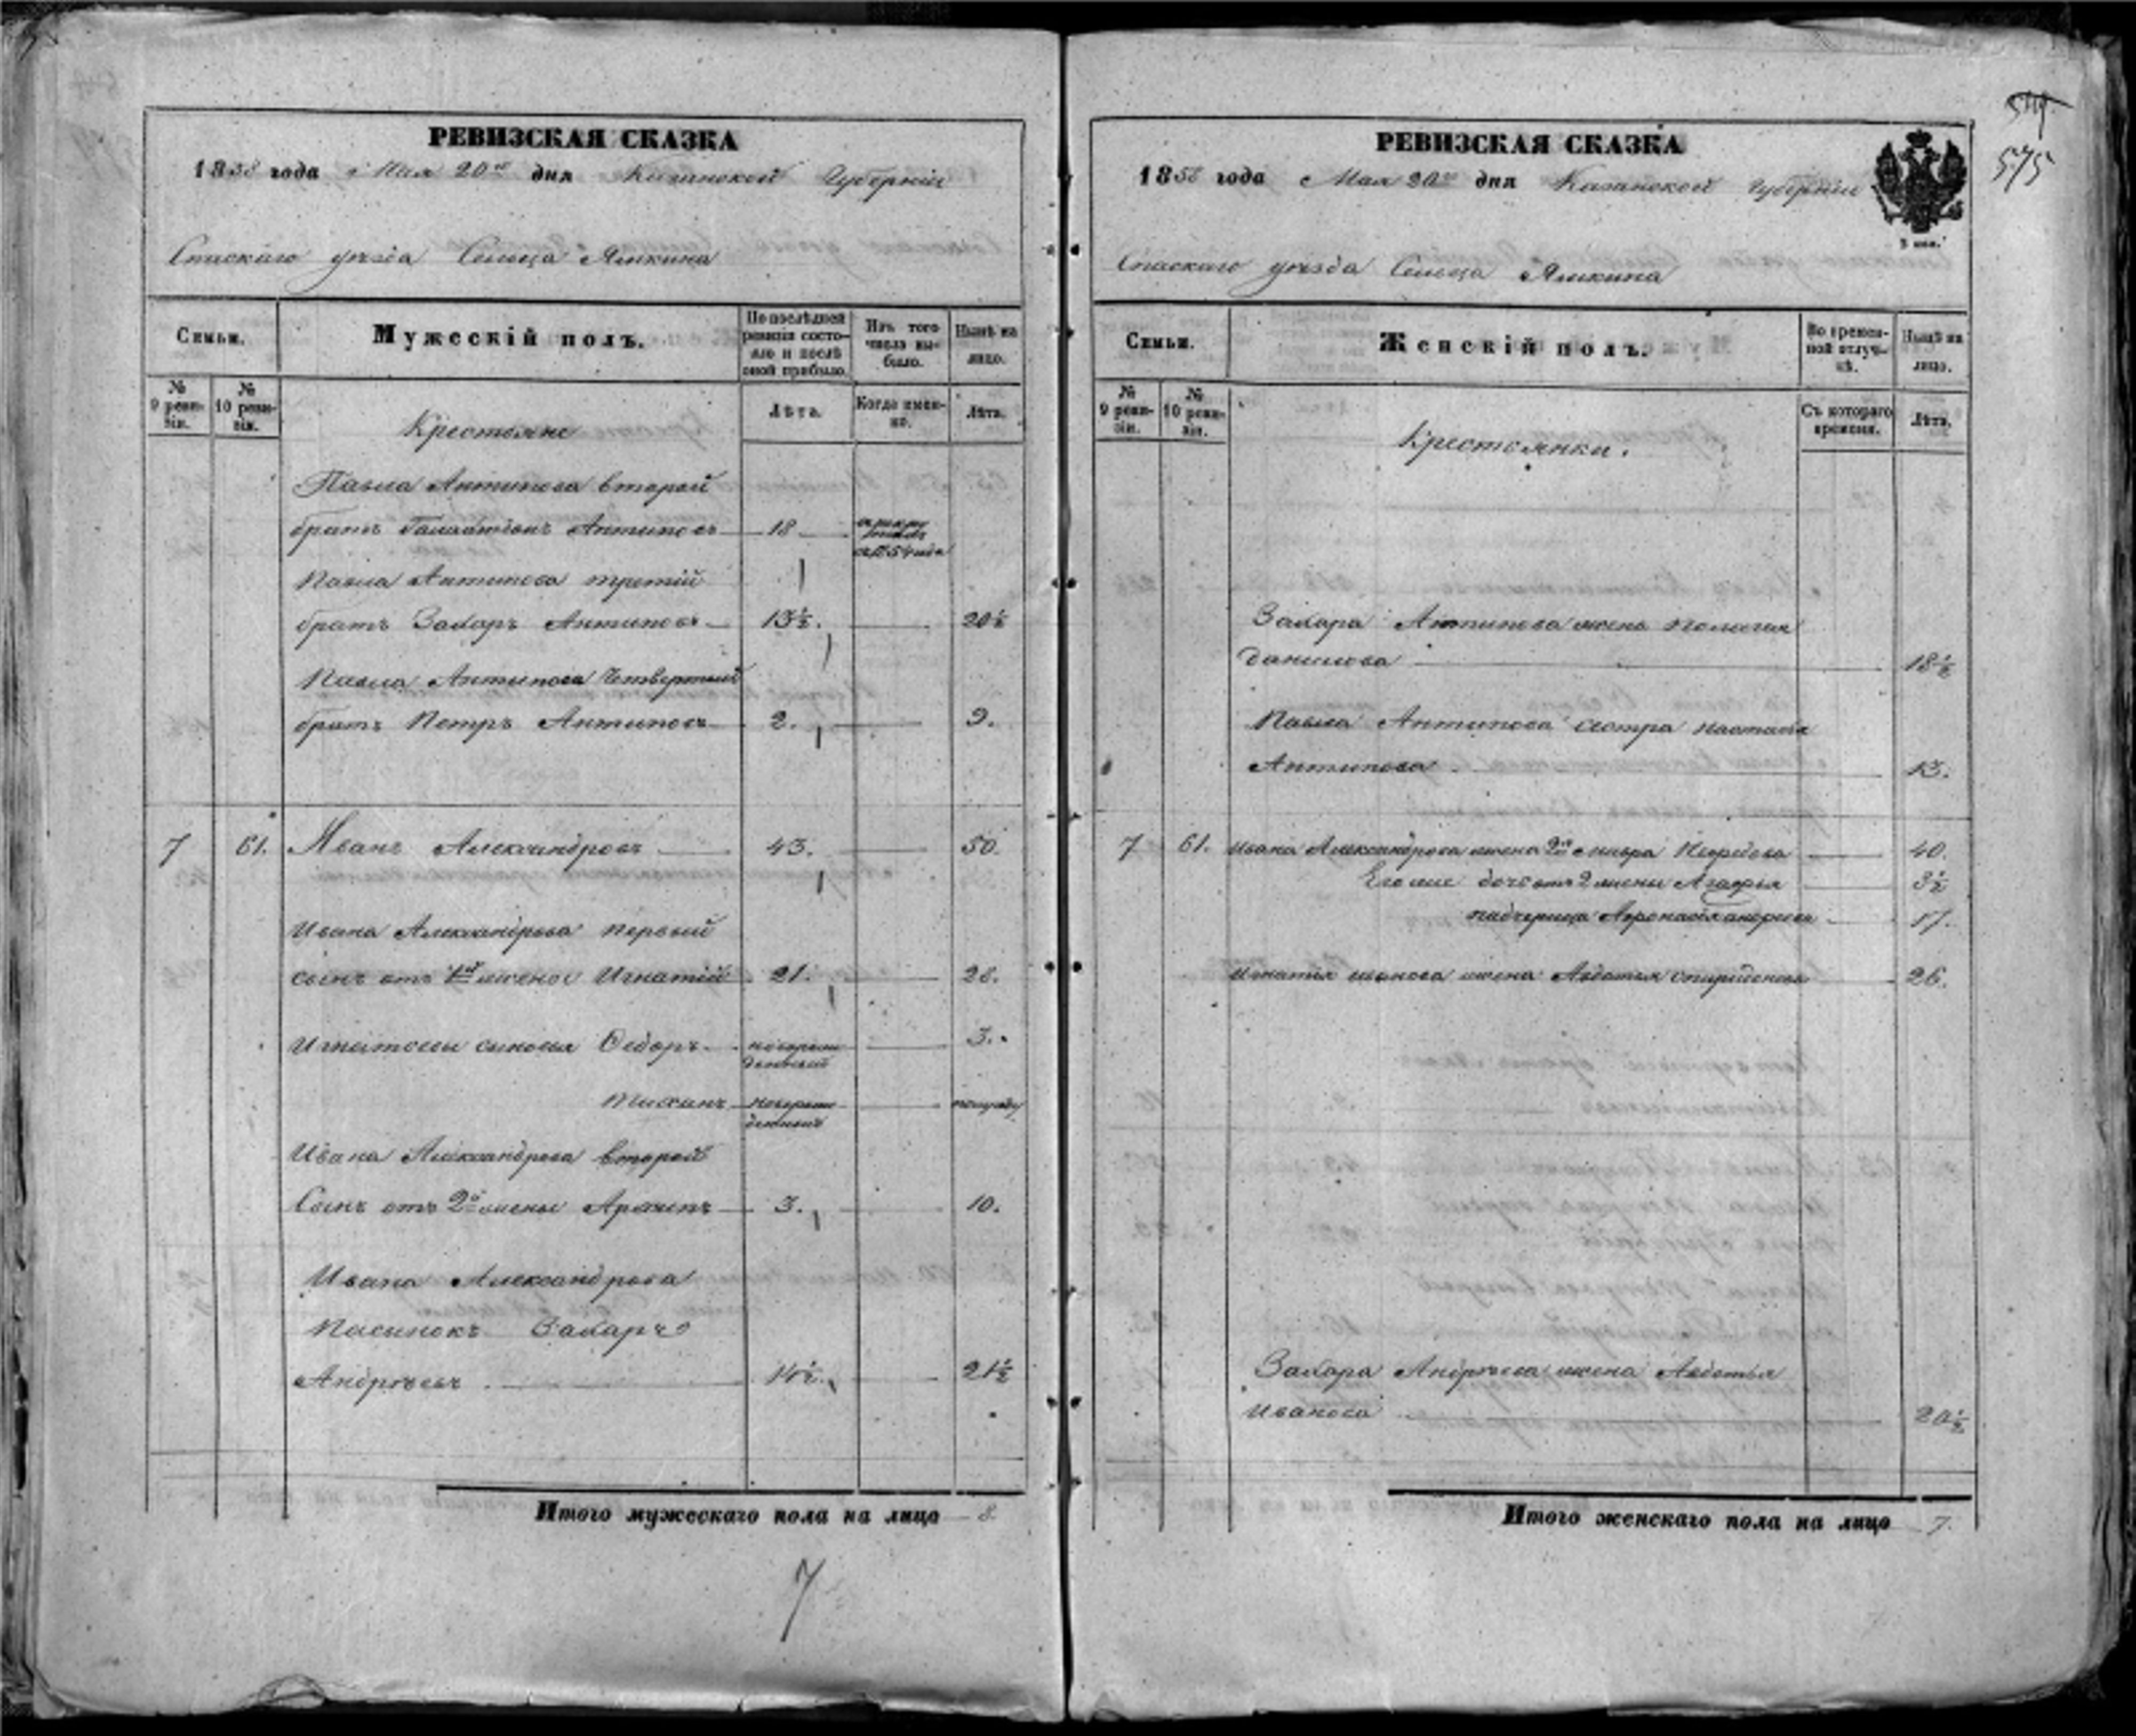 РЕВИЗСКАЯ СКАЗКА
1858 года Мая 20го дня Казанской Губерніи
Спаскаго уѣзда Сельца Ямкина
Семьи.
Мужескій полъ.
По послѣдней ревизіи состояло и послѣ оной прибыло.
Изъ того числа выбыло.
Нынѣ на лицо.
№ 9 ревизіи.
№ 10 ревизіи.
Лѣта.
Когда именно.
Лѣта.
Крестьяне
Павла Антипова второй
братъ Антиповъ 18 1854 года
Павла Антипова третій
братъ Захаръ Антиповъ 13½. 20½
Павла Антипова четвертый
братъ Петръ Антиповъ 2. 9.
7 61. Иванъ Александровъ 43. 50.
Ивана Александрова первый
сынъ отъ 1ой жены Игнатій 21. 28.
Игнатьевы сыновья Ѳедоръ новорожденный 3.
новорожденный полгоду
Ивана Александрова второй
Сынъ отъ 2й жены Архипъ 3. 10.
Ивана Александрова
Пасынокъ Захаръ
Андрѣевъ 14½. 21½
Итого мужескаго пола на лицо 8.
7
РЕВИЗСКАЯ СКАЗКА
1858 года Мая 20го дня Казанской Губерніи
3 коп.
575
Спаскаго уѣзда Сельца Ямкина
Семьи.
Женскій полъ.
Во временной отлучкѣ.
Нынѣ на лицо.
№ 9 ревизіи.
№ 10 ревизіи.
Съ котораго времени.
Лѣта.
Крестьянки.
Захара Антипова жена Пелагея
Данилова 18½
Павла Антипова сестра Настасья
Антипова 13.
7 61. Ивана Александрова жена 2я 40.
Его же дочь отъ 2 жены Агафья 3½
падчерица 17.
Игнатья Иванова жена Авдотья Спиридонова 26.
Захара Андрѣева жена Авдотья
Иванова 20½
Итого женскаго пола на лицо 7.